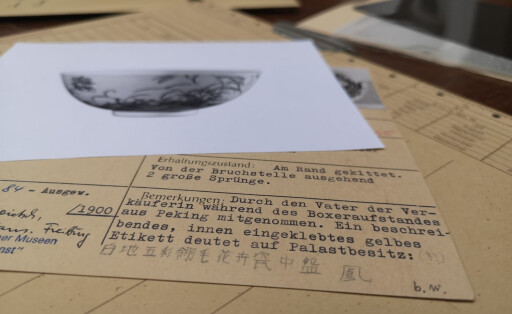 Erhaltungszustand: Am Rand gekittet.
Von der Bruchstelle ausgehend
2 große Sprünge.
84 - Ausgew.
/1900
Bemerkungen: Durch den Vater der Ver-
käuferin während des Boxeraufstandes
aus Peking mitgenommen. Ein beschrei-
bendes, innen eingeklebtes gelbes
Etikett deutet auf Palastbesitz:
白地五彩翎毛花卉瓷中盤 鳳
er Museen
st"
b.w.